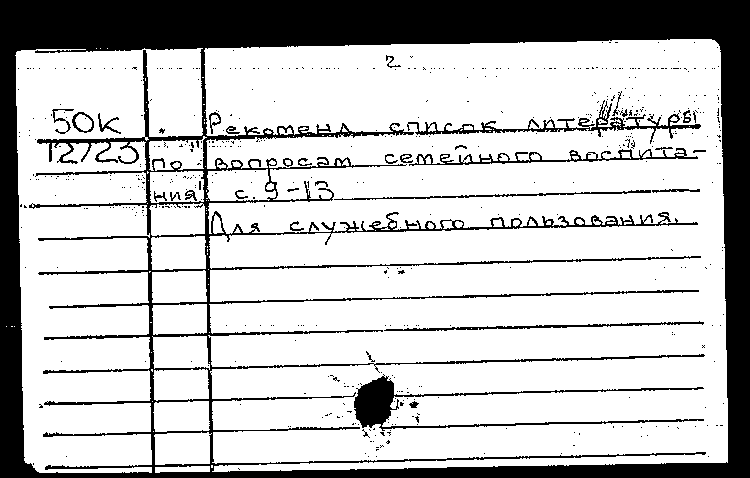 2
50К . Рекоменд. список литературы
12723 по "вопросам семейного воспита-
ния" с. 9-13
Для служебного пользования.